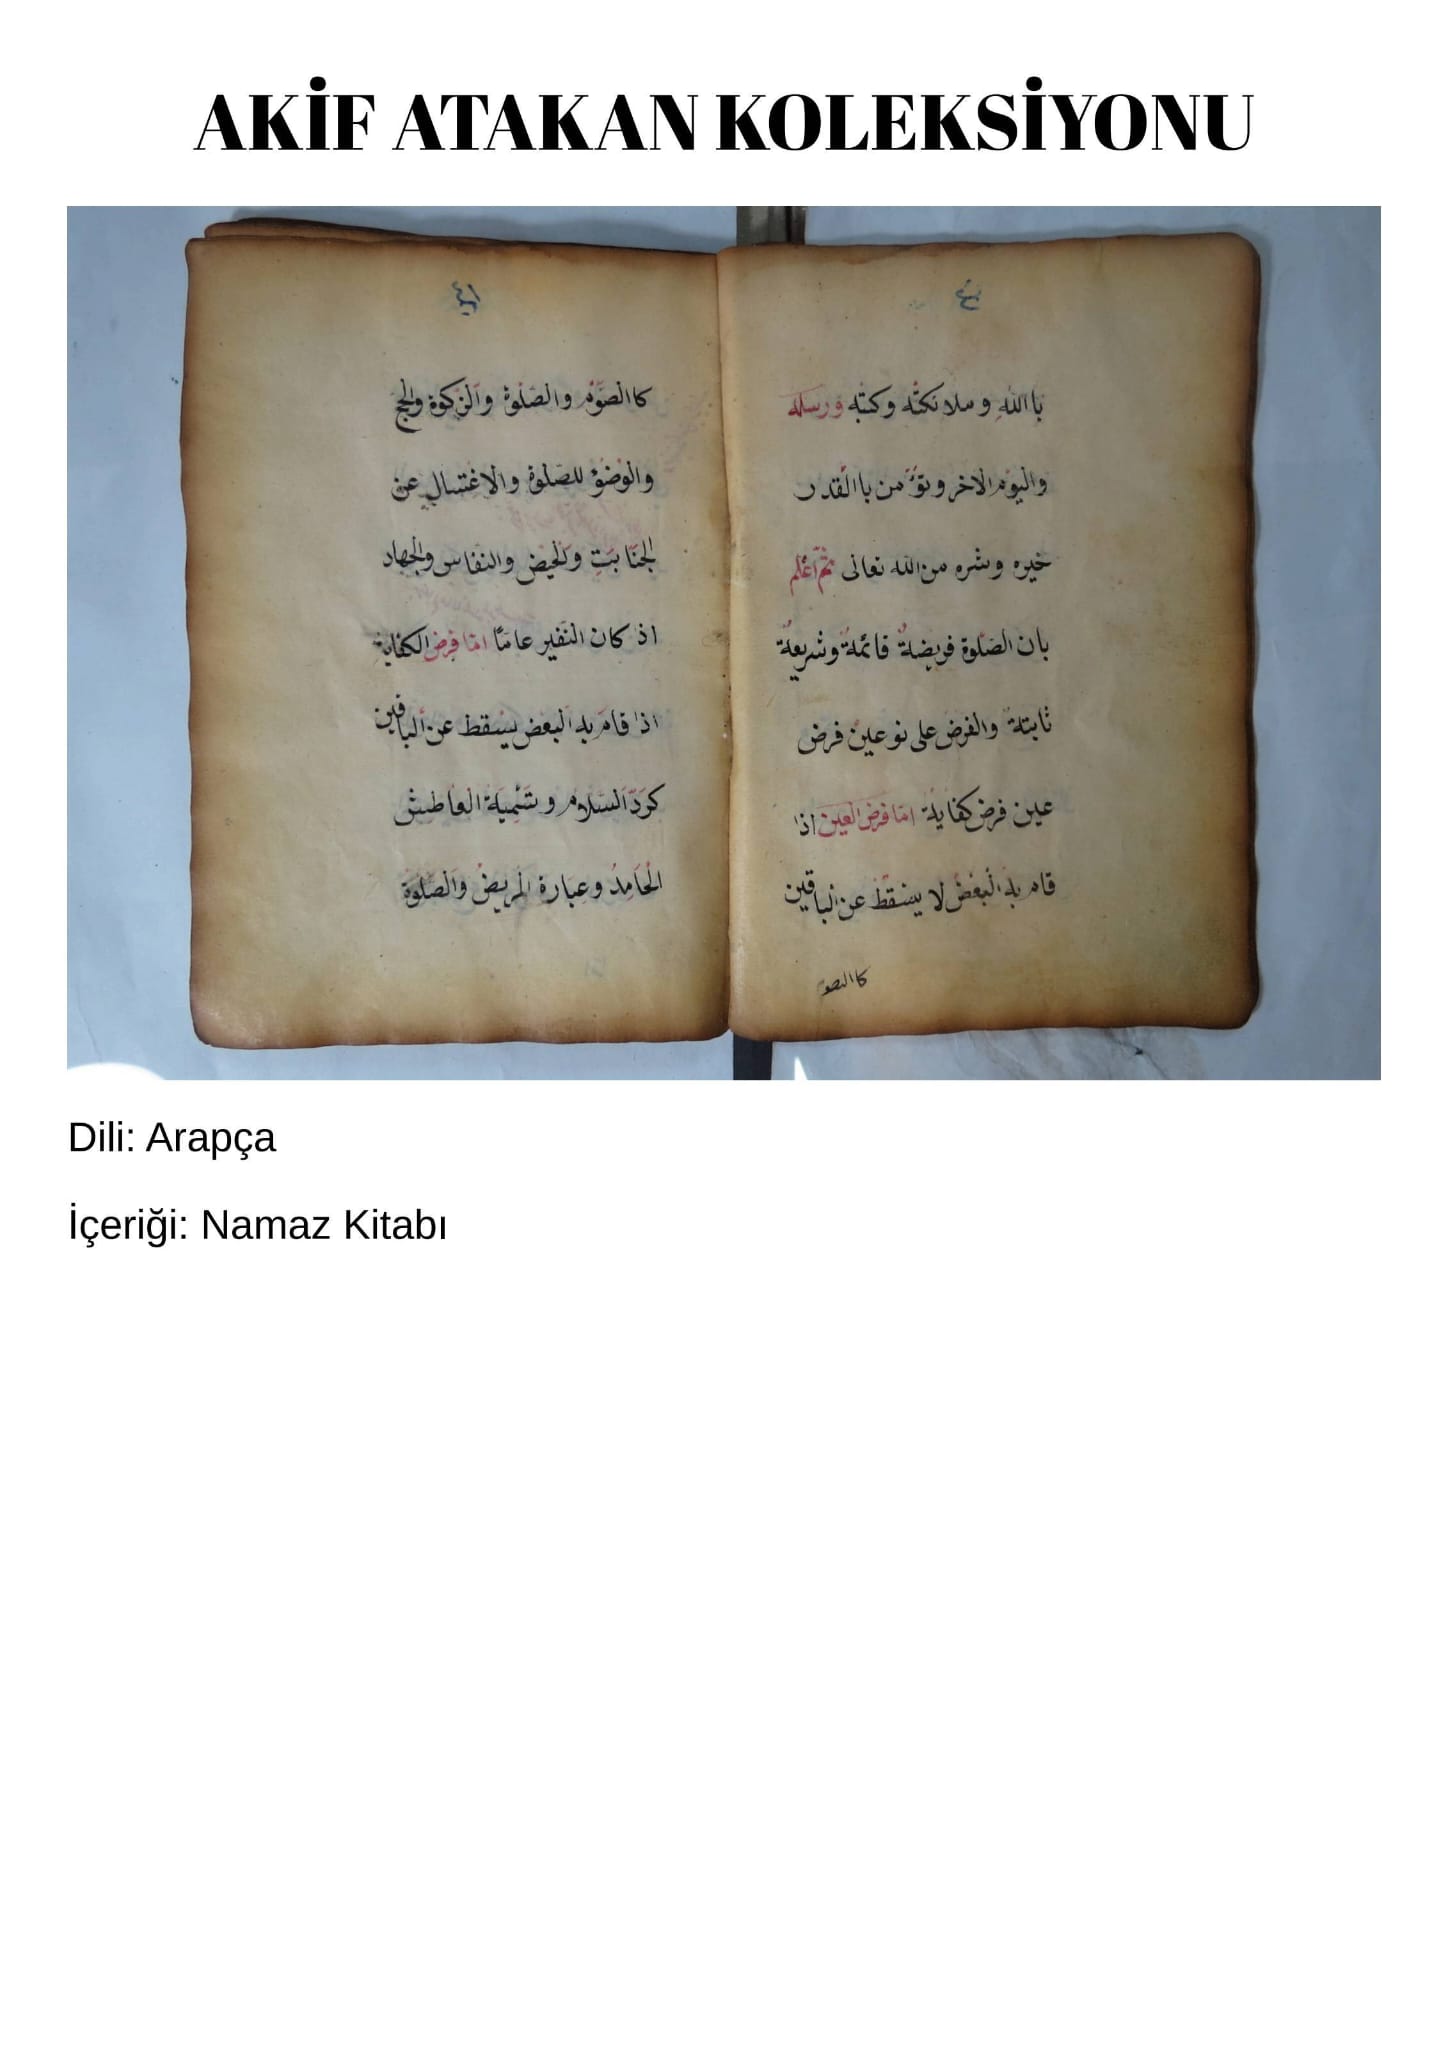 AKİF ATAKAN KOLEKSİYONU
باالله وملائكته وكتبه ورسله
واليوم الاخر وتؤمن باالقدر
خيره وشره من الله تعالى ثم اعلم
بان الصلوة فريضة قائمة وشريعة
ثابتة والفرض على نوعين فرض
عين فرض كفاية امّا فرض العين اذا
قام به البعض لا يسقط عن الباقين
كاالصو
كاالصّوم والصّلوة والزّكوة والحج
والوضؤ للصّلوة والاغتسال عن
الجنابت والحيض والنفاس والجهاد
اذ كان النّفير عامّا امّا فرض الكفاية
اذا قام به البعض يسقط عن الباقين
كردّ السّلام وشمية العاطش
الحامد وعبارة المريض والصّلوة
Dili: Arapça
İçeriği: Namaz Kitabı